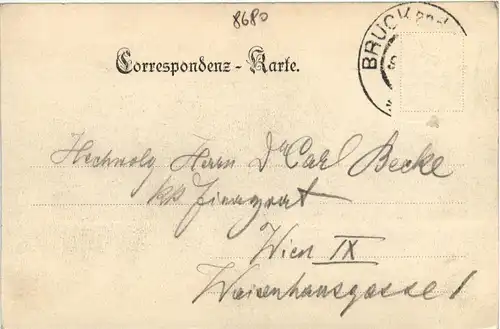 8680
BRUCK
Correspondenz-Karte.
Herrn Dr Carl Becke
kk Finazrat
Wien IX
Waisenhausgasse 1